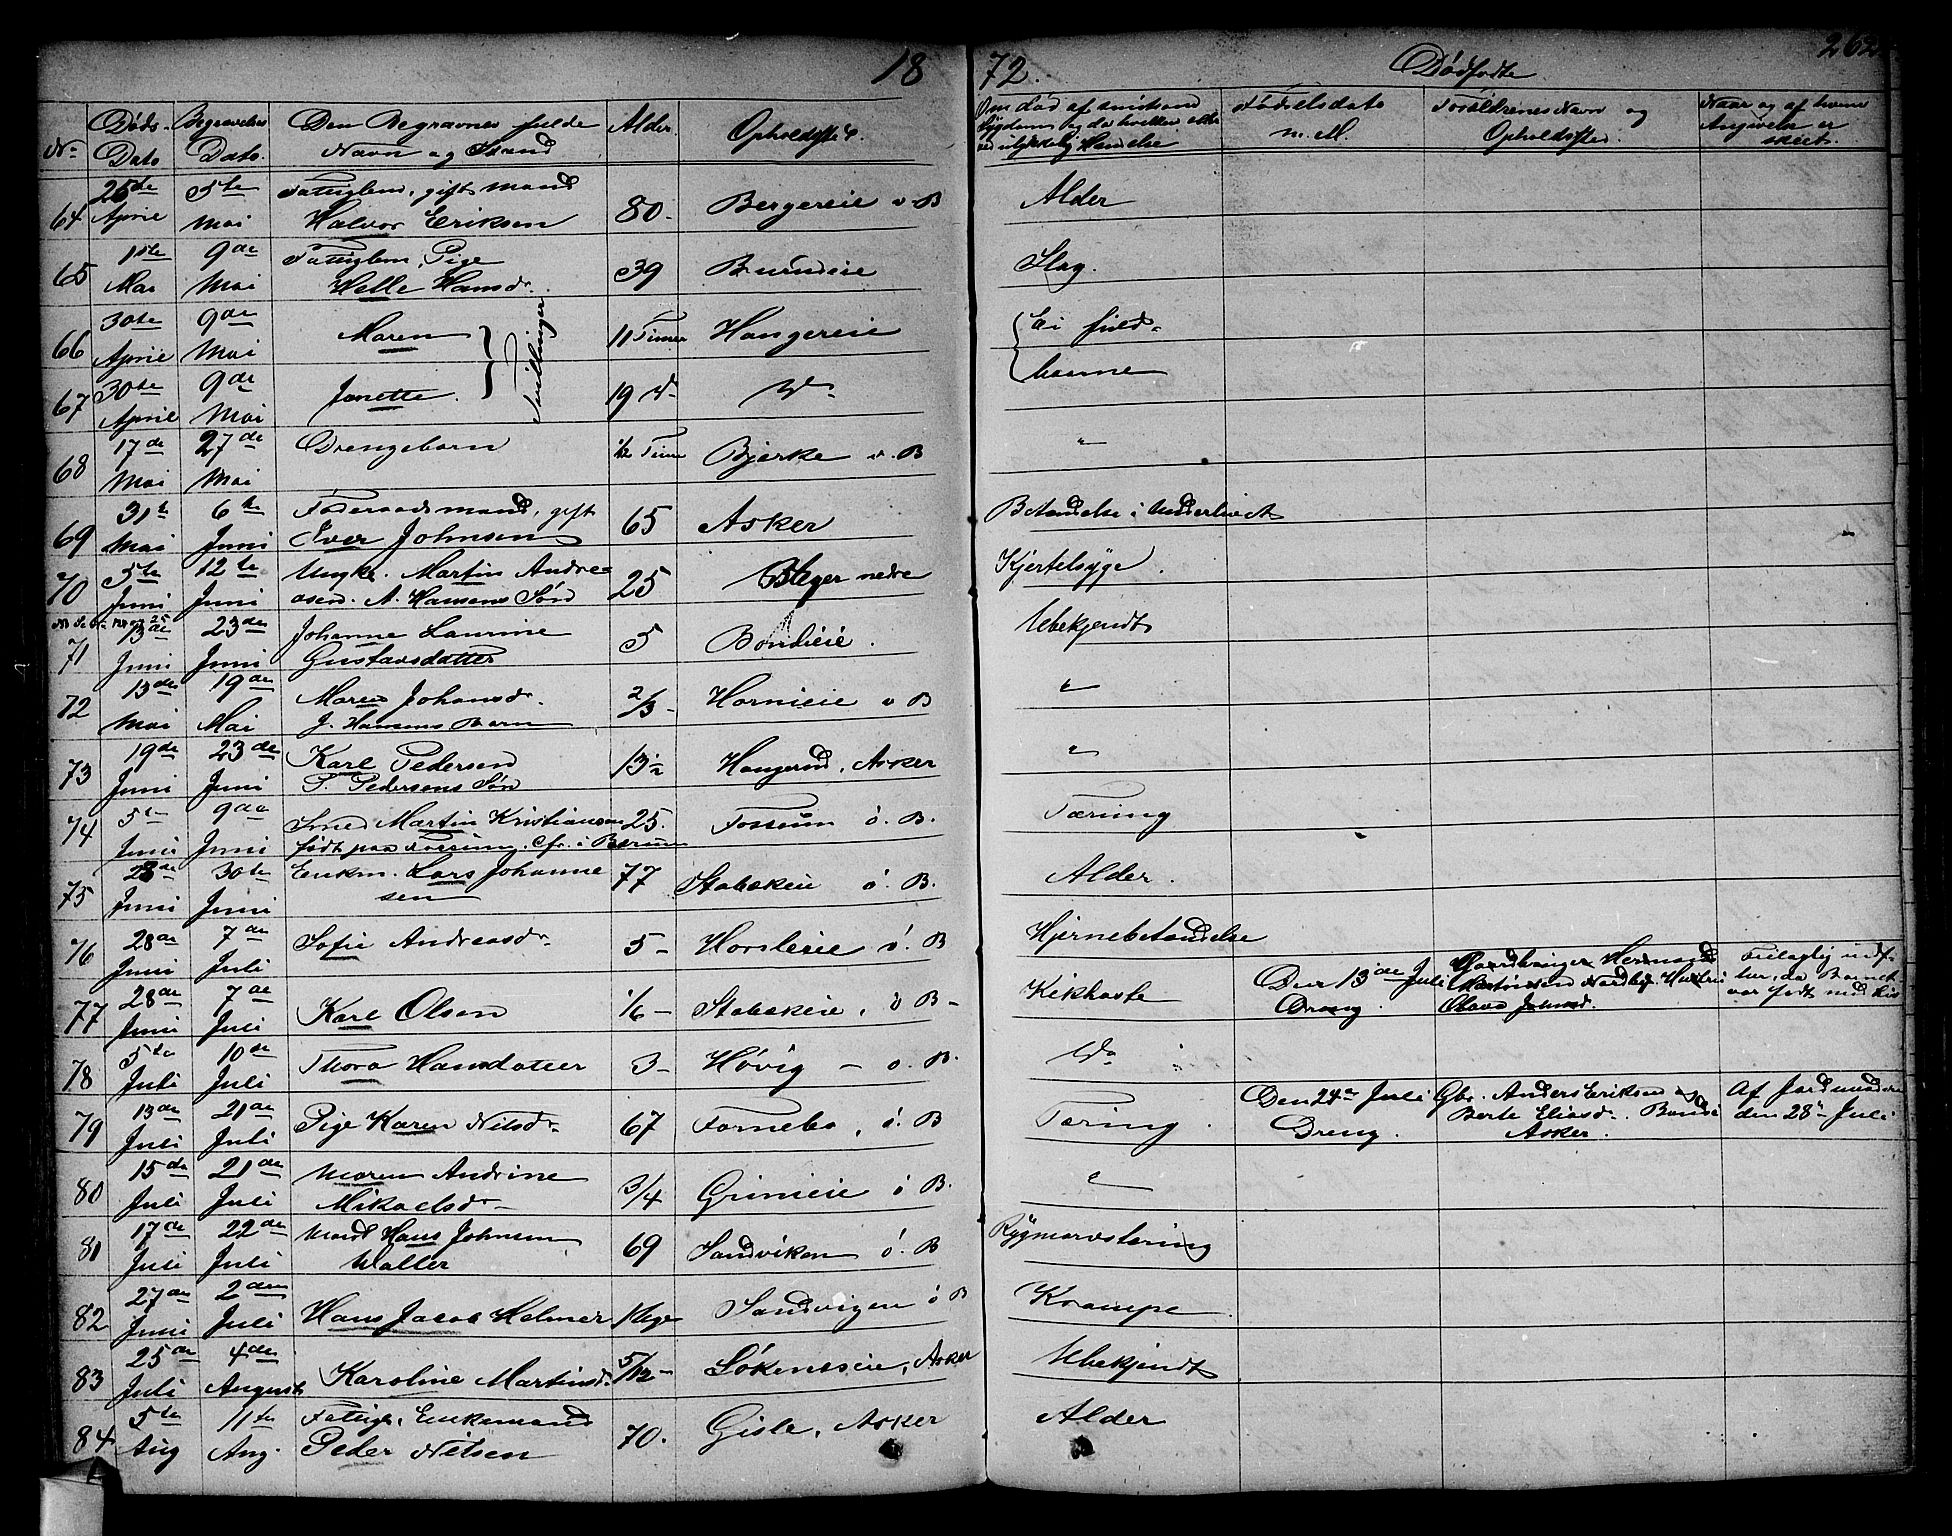 18 72. Dødfødte 262
No Døds- Dato Begravelses Dato. Den Begravnes fulde Navn og Stand Alder. Opholdssted. Om død af smitsom Sygdom og da hvilken eller ved ulykkelig Hændelse Fødselsdato m. M. Forældrenes Navn og Opholdssted. Naar og af hvem Angivelse er skeet.
64 25de April 5te Mai Fattiglem, gift Mand
Halvor Eriksen 80- Bergereie v B Alder
65 1ste Mai 9de Mai Fattiglem, Pige
Helle Hansdr. 39 Burudeie Slag.
66 30te April 9de Mai Maren } Tvillinger 11 Timer Haugereie { Ei fuld-
67 30te April 9de Mai Janette. 19 do do { baarne
68 17de Mai 27de Mai Drengebarn ½ Time Bjerke v. B "
69 31te Mai 6te Juni Føderaadsmand, gift
Iver Johnsen 65 Asker Betændelse i Underlivet
70 5te Juni 12te Juni Ungk. Martin Andre-
asen. A. Hansens Søn 25 Bleger nedre Kjertelsyge.
71 13de Juni 23de Juni Johanne Laurine
Gustavsdatter 5 Bondieie. Ubekjendt
72 13de Mai 19de Mai Maren Johansdr.
J. Hansens Barn 2/3- Hornieie v B "
73 19de Juni 23de Juni Karl Pedersen
P. Pedersens Søn 13- Haugerud, Asker "
74 5te Juni 9de Juni Smed Martin Kristiansen
født paa Fossum, i Bærum 25. Fossum ö. B. Tæring
75 28de Juni 30te Juni Enkm. Lars Johanne
sen 77 Stabekeie ö. B. Alder.
76 28de Juni 7de Juli Sofie Andreasdr. 5- Horsleeie ö. B Hjernebetændelse
77 28de Juni 7de Juli Karl Olsen 1/6- Stabekeie, ö B- Kikhoste Den 13de Juli
Dreng. Gaardbruger Herman
Nordby. Hustru
Olava
da Barnet
var født
78 5te Juli 10de Juli Thora Hansdatter 3- Høvig - ö. B. do
79 13de Juli 21de Juli Pige Karen Nilsdr. 67 Fornebo, ö. B Tæring. Den 24de Juli
Dreng. Gbr. Anders Eriksen og
Berte Eliasdr. Bondi
Asker. Af Jordmoderen
den 28de Juli
80 15de Juli 21de Juli Maren Andrine
Mikaelsdr. 3/4 Grinieie ö B. "
81 17de Juli 22de Juli Mand Hans Johnsen
Waller 69 Sandviken ö. B Rygmarvstæring
82 27de Juni 2den Juli Hans Jacob Helmer 1 Uge Sandvigen ö B Krampe
83 25de Juli 4de August Karoline Martinsdr. 5/12- Løkeneseie, Asker Ubekjendt
84 5te Aug 11te Aug. Fattige, Enkemand
Peder Nilsen 70. Gisle, Asker Alder